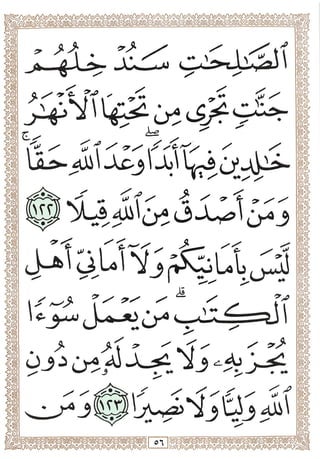 ٱلصَّـٰلِحَـٰتِ سَنُدْخِلُهُمْ
جَنَّـٰتٍ تَجْرِى مِن تَحْتِهَا ٱلْأَنْهَـٰرُ
خَـٰلِدِينَ فِيهَآ أَبَدًاۖ وَعْدَ ٱللَّهِ حَقًّاۚ
وَمَنْ أَصْدَقُ مِنَ ٱللَّهِ قِيلًا ١٢٢
لَّيْسَ بِأَمَانِيِّكُمْ وَلَآ أَمَانِىِّ أَهْلِ
ٱلْكِتَـٰبِۗ مَن يَعْمَلْ سُوٓءًا
يُجْزَ بِهِۦ وَلَا يَجِدْ لَهُۥ مِن دُونِ
ٱللَّهِ وَلِيًّا وَلَا نَصِيرًا ١٢٣ وَمَن
٥٦